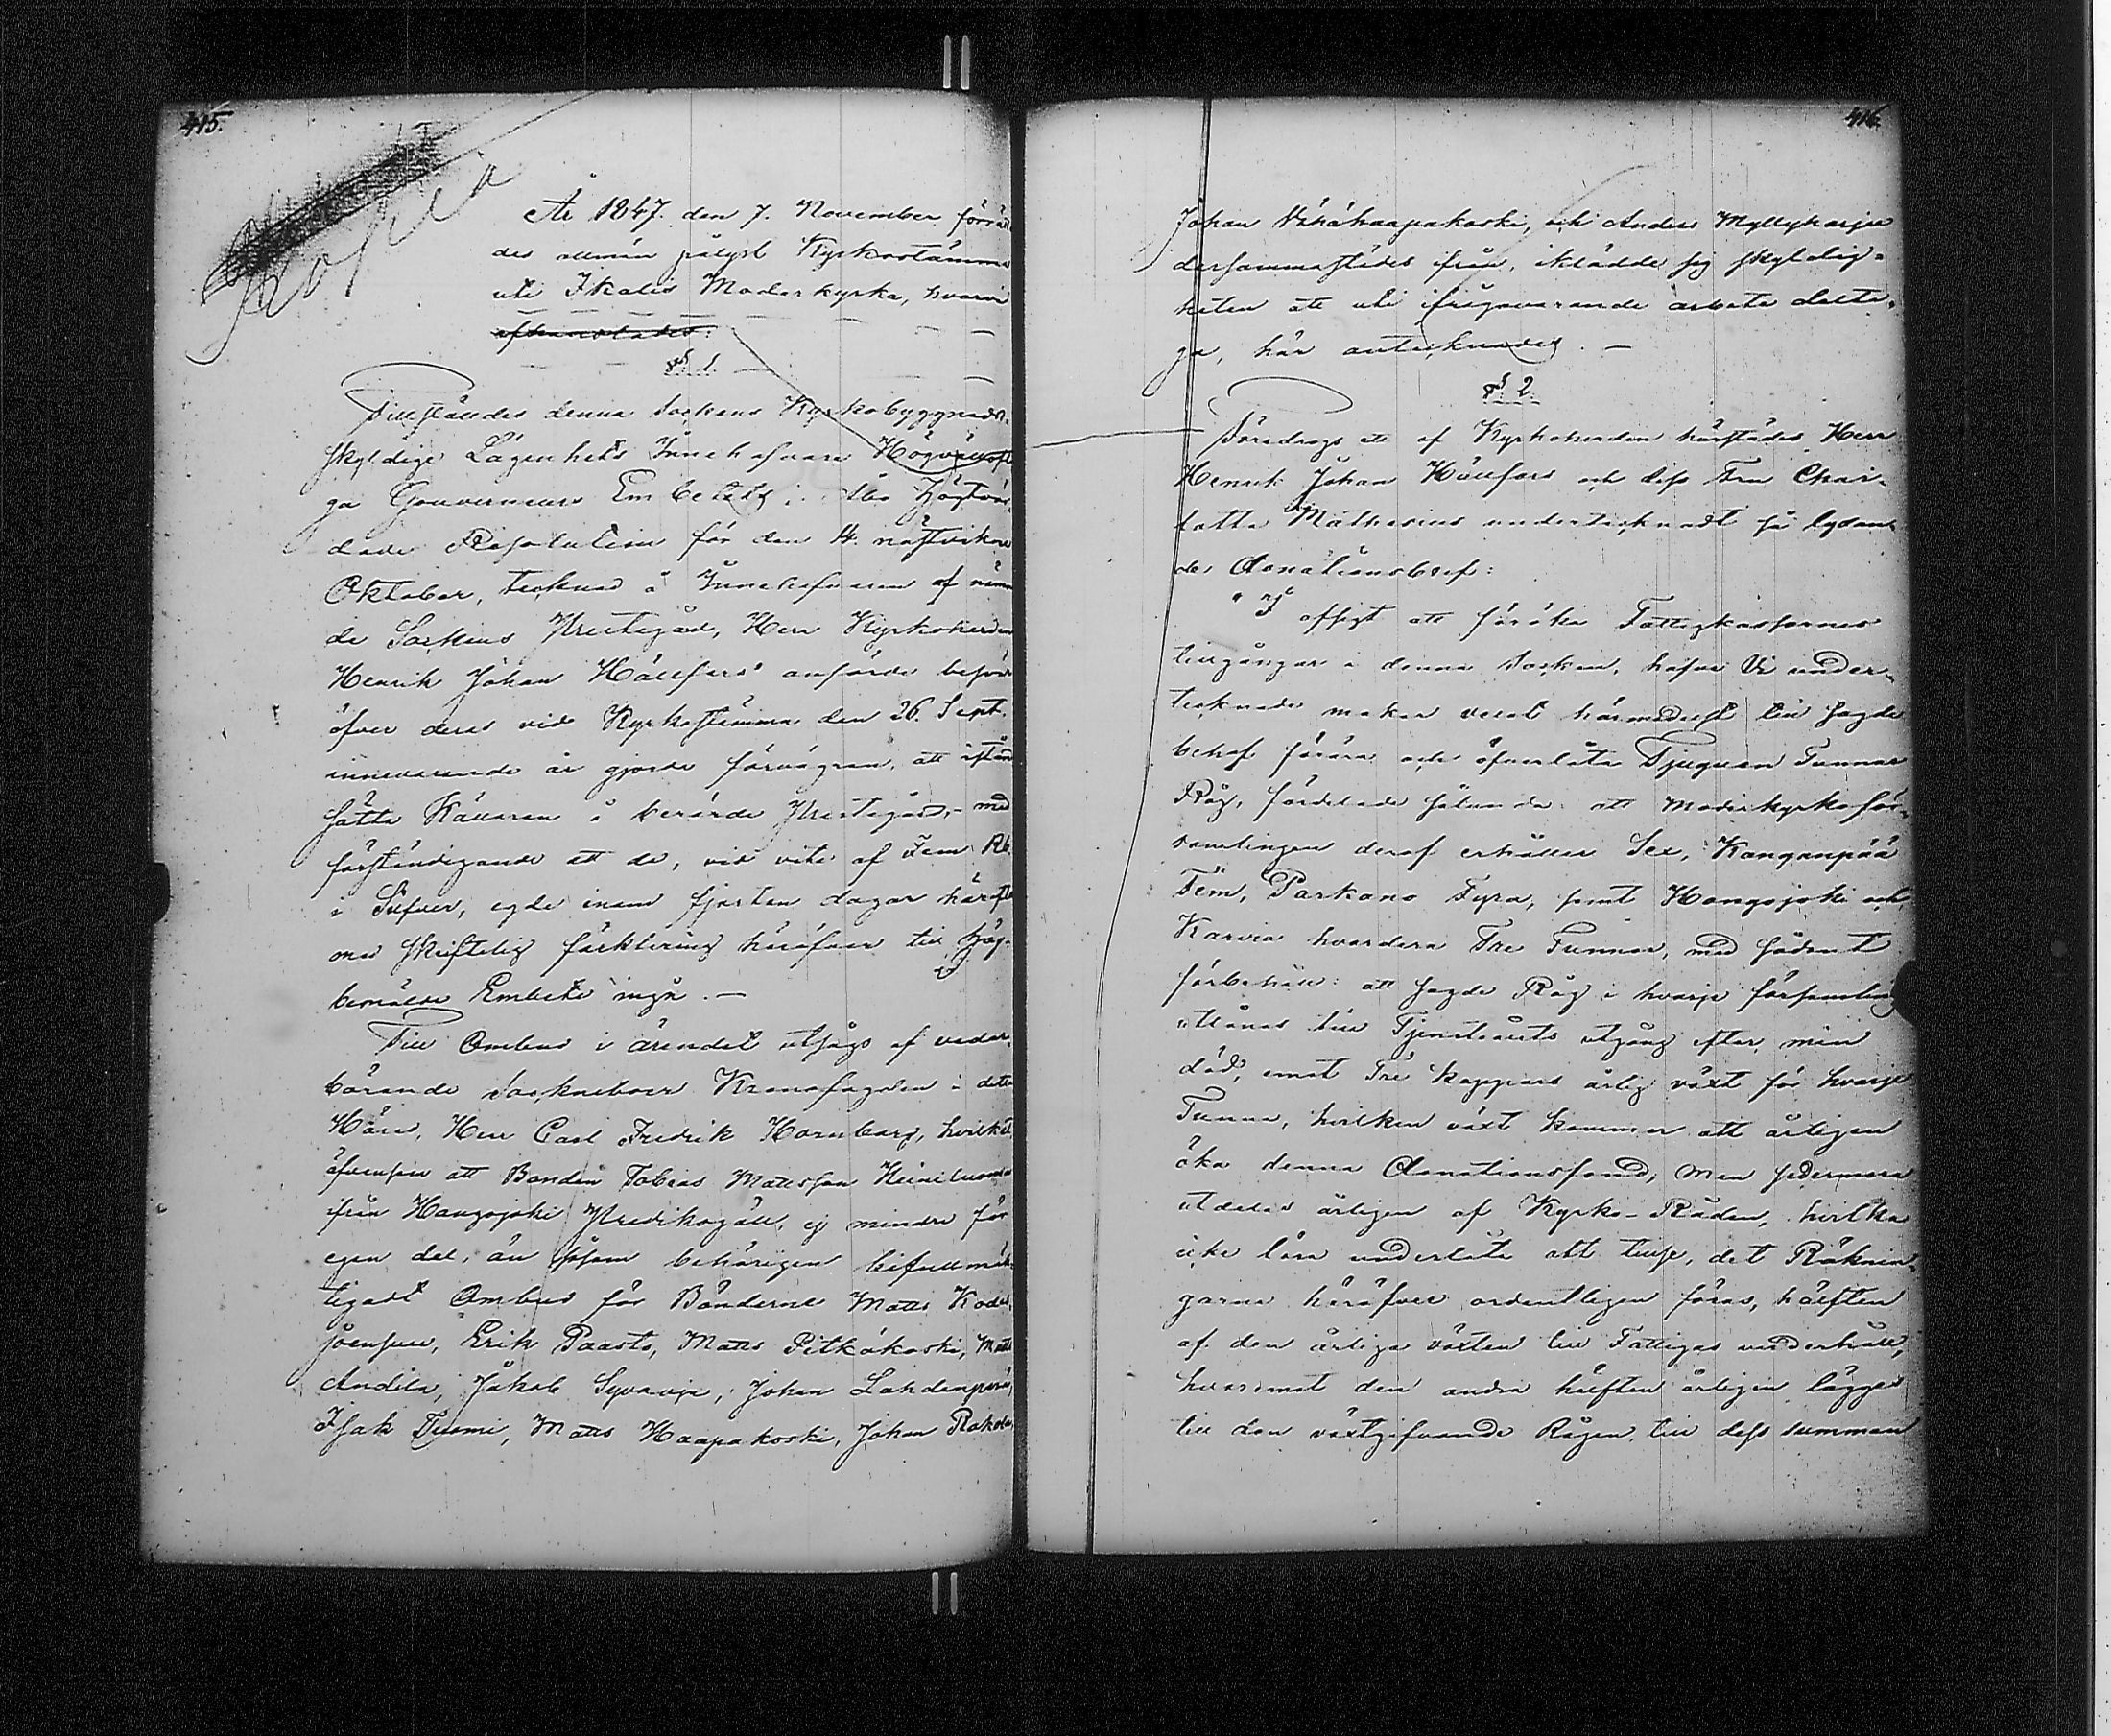 415.
År 1847. den 7. November förrät-
des allmän pålyst Kyrkostämma
uti Ikalis Moderkyrka, hvarvi
afhandlades:
§ 1.
Tillställdes denna Sockens Kyrkobyggnads-
skyldige Lägenhets Innehafvare Högvälloflige
ga Gouverneurs Embetets i Åbo Högtvör-
dade Resolution för den 14. nästvikne
Oktober, tecknad å Innehafvaren af näm
de Sockens Prestegård, Herr Kyrkoherden
Henrik Johan Hällfors' anförde besvär
öfver deras vid Kyrkostämma den 26. Sept.
innevarande år gjorde förvägran, att istånd
sätta Källaren å berörde Prestegård, med
förständigande att de, vid vite af Fem Rb.
i Silfver, egde inom fjorton dagar härefter
med skriftelig förklaring häröfver till Hög-
bemälde Embete ingå. —
Till Ombud i ärendet utsågs af veder-
börande Sockneboer Kronofogden i detta
Härad, Herr Carl Fredrik Hornborg, hvilket
äfvensom att Bonden Tobias Mattsson Heiniluoma
ifrån Hongojoki Predikogäll, ej mindre för
egen del, än såsom behörigen befullmäk-
tigadt Ombud för Bönderne Matts Kodes-
joensuu, Erik Paasto, Matts Pitkäkoski, Matts
Andila, Jakob Syvaoja, Johan Lahdenperä,
Isak Tuomi, Matts Haapakoski, Johan Rakola,
416.
Johan Vähähaapakoski, och Anders Myllykarju
dersammastädes ifrån, iklädde sig skyldig-
heten att uti ifrågavarande arbete delta-
ga, här antecknades. —
§ 2.
Föredrogs ett af Kyrkoherden härstädes Herr
Henrik Johan Hällfors och dess Fru Char-
lotta Mathesius undertecknadt så lydan-
de Donationsbref:
"I afsigt att föröka Fattigkassornes
tillgångar i denna Socken, hafva Vi under-
tecknade makar velat härmedelst till sagde
behof förära och öfverlåta Tjuguen Tunnor
Råg, fördelade sålunda: att Moderkyrkoför-
samlingen deraf erhåller Sex, Kangonpää
Fem, Parkano Fyra, samt Hongojoki och
Karvia hvardera Tre Tunnor, med sådant
förbehåll: att sagde Råg i hvarje församling
utlånas till Tjensteårets utgång efter min
död, emot Tre kappars årlig växt för hvarje
Tunna, hvilken växt kommer att årligen
öka denna Donationsfond, men sedermera
utdelas årligen af Kyrko-Råden, hvilka
icke lära underlåta att tillse, det Räknin-
garne häröfver ordentligen föras, hälften
af den årliga växten till Fattigas underhåll,
hvaremot den andra hälften årligen lägges
till den växtgifvande Rågen, till dess summan